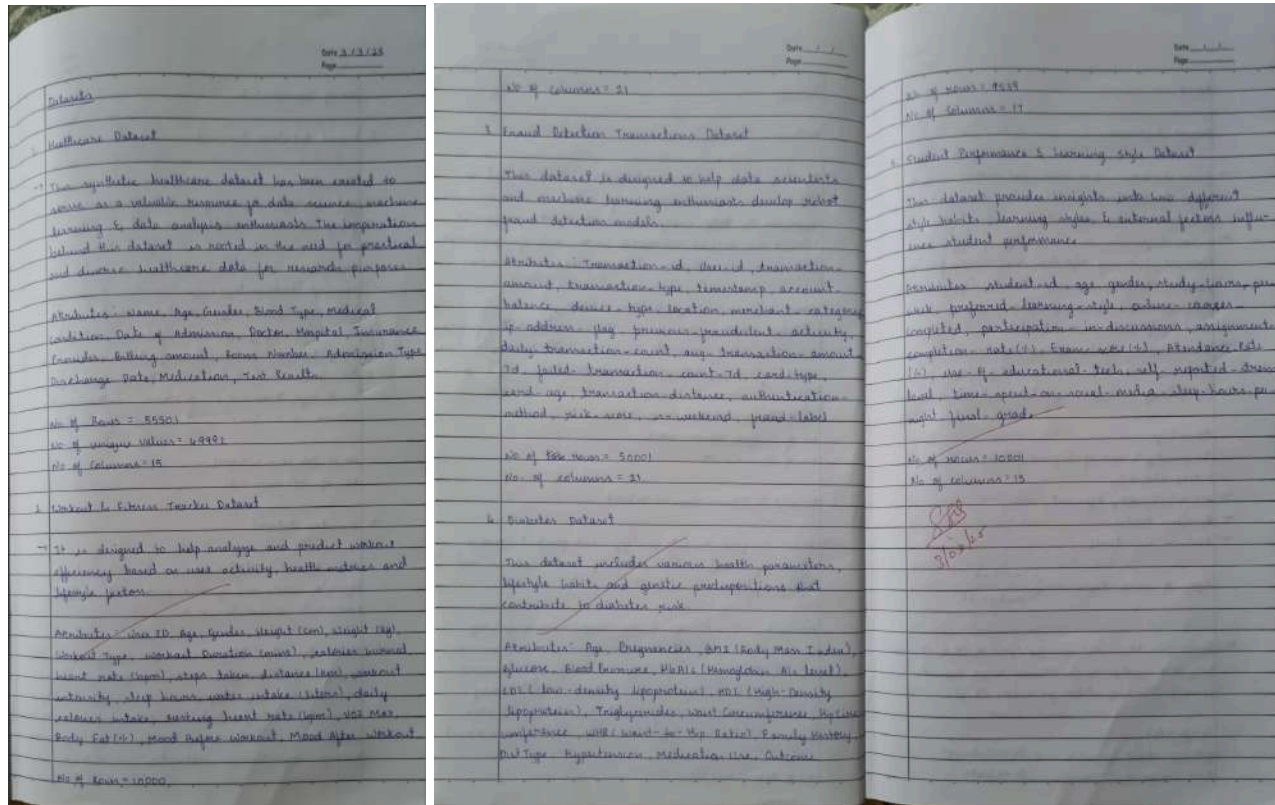 Date 3/3/25
Page
Datasets
Healthcare Dataset
→ This synthetic healthcare dataset has been created to
serve as a valuable resource for data science, machine
learning & data analysis enthusiasts. The inspiration
behind this dataset is rooted in the need for practical
and diverse healthcare data for research purposes
Attributes: Name, Age, Gender, Blood Type, medical
condition, Date of Admission, Doctor, Hospital, Insurance
Provider, Billing amount, Room Number, Admission Type
Discharge Date, Medication, Test Result.
No of Rows = 55501
No of unique values = 49992
No of Columns = 15
2. Workout & Fitness Tracker Dataset
→ It is designed to help analyze and predict workout
efficiency based on user activity, health metrics and
lifestyle factors.
Attributes: User ID, Age, Gender, Height (cm), Weight (kg),
Workout Type, Workout Duration (mins), calories burned,
heart rate (bpm), steps taken, distance (km), workout
intensity, sleep hours, water intake (liters), daily
calories intake, resting heart rate (bpm), VO2 Max,
Body Fat (%), Mood Before Workout, Mood After Workout
No of Rows = 10000
Date / /
Page
No of columns = 21
3. Fraud Detection Transactions Dataset
This dataset is designed to help data scientists
and machine learning enthusiasts develop robst
fraud detection models.
Attributes: Transaction-id, User-id, transaction-
amount, transaction-type, timestamp, account
balance, device type, location, merchant category
ip-address-flag, previous-fraudulent-activity,
daily-transaction-count, avg-transaction-amount
7d, failed-transaction-count-7d, card-type,
card-age, transaction-distance, authentication-
method, risk-score, is-weekend, fraud-label
No of rows = 50001
No. of columns = 21
4. Diabetes Dataset
This dataset includes various health parameters,
lifestyle habits and genetic predispositions that
contribute to diabetes risk.
Attributes: Age, Pregnancies, BMI (Body Mass Index),
Glucose, Blood Pressure, HbA1c (Hemoglobin A1c level),
LDL (low-density lipoprotein), HDL (High-Density
lipoprotein), Triglycerides, Waist Circumference, Hip Circ
umference, WHR (Waist-to-Hip Ratio), Family History,
Diet Type, Hypertension, Medication Use, Outcome
Date / /
Page
No of Rows = 9539
No of Columns = 17
Student Performance & Learning Style Dataset
This dataset provides insights into how different
style habits learning styles, & external factors influ-
ence student performance.
Attributes student-id, age gender, study-hours, per
week, preferred-learning-style, online-courses-
completed, participation-in-discussions, assignment
completion-rate (%), Exam score (%), Attendance Rate
(%), use-of-educational-tech, self reported-stress
level, time-spent-on-social-media-sleep-hours-per
night final-grade
No of Rows = 10001
No of columns = 15
3/03/25